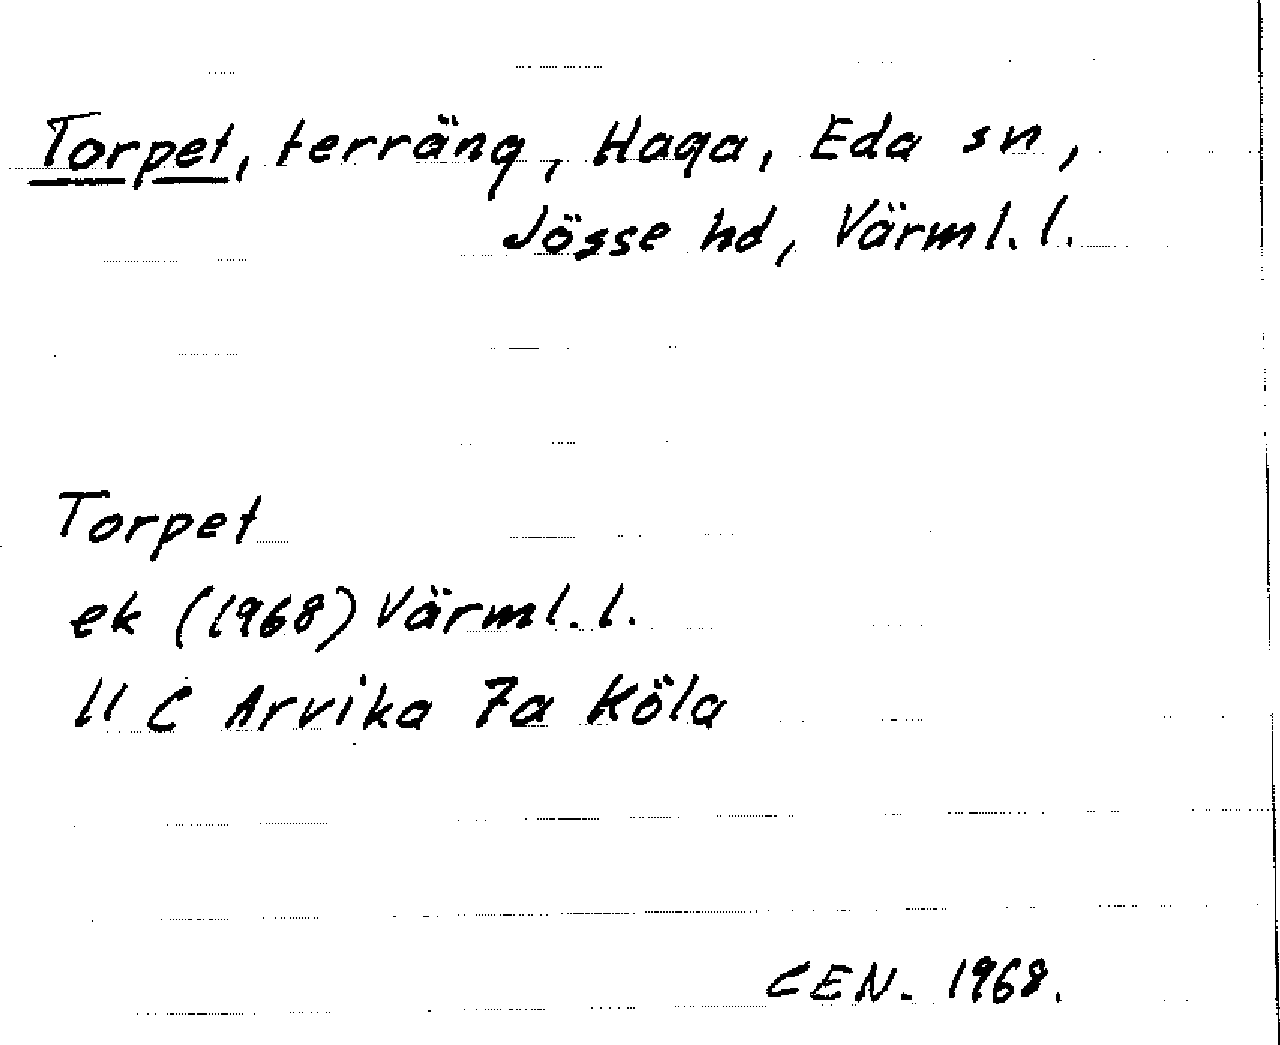 Torpet, terräng, Haga, Eda sn,
Jösse hd, Värml. l.
Torpet
ek (1968) Värml. l.
11 C Arvika 7a Köla
CEN. 1968.